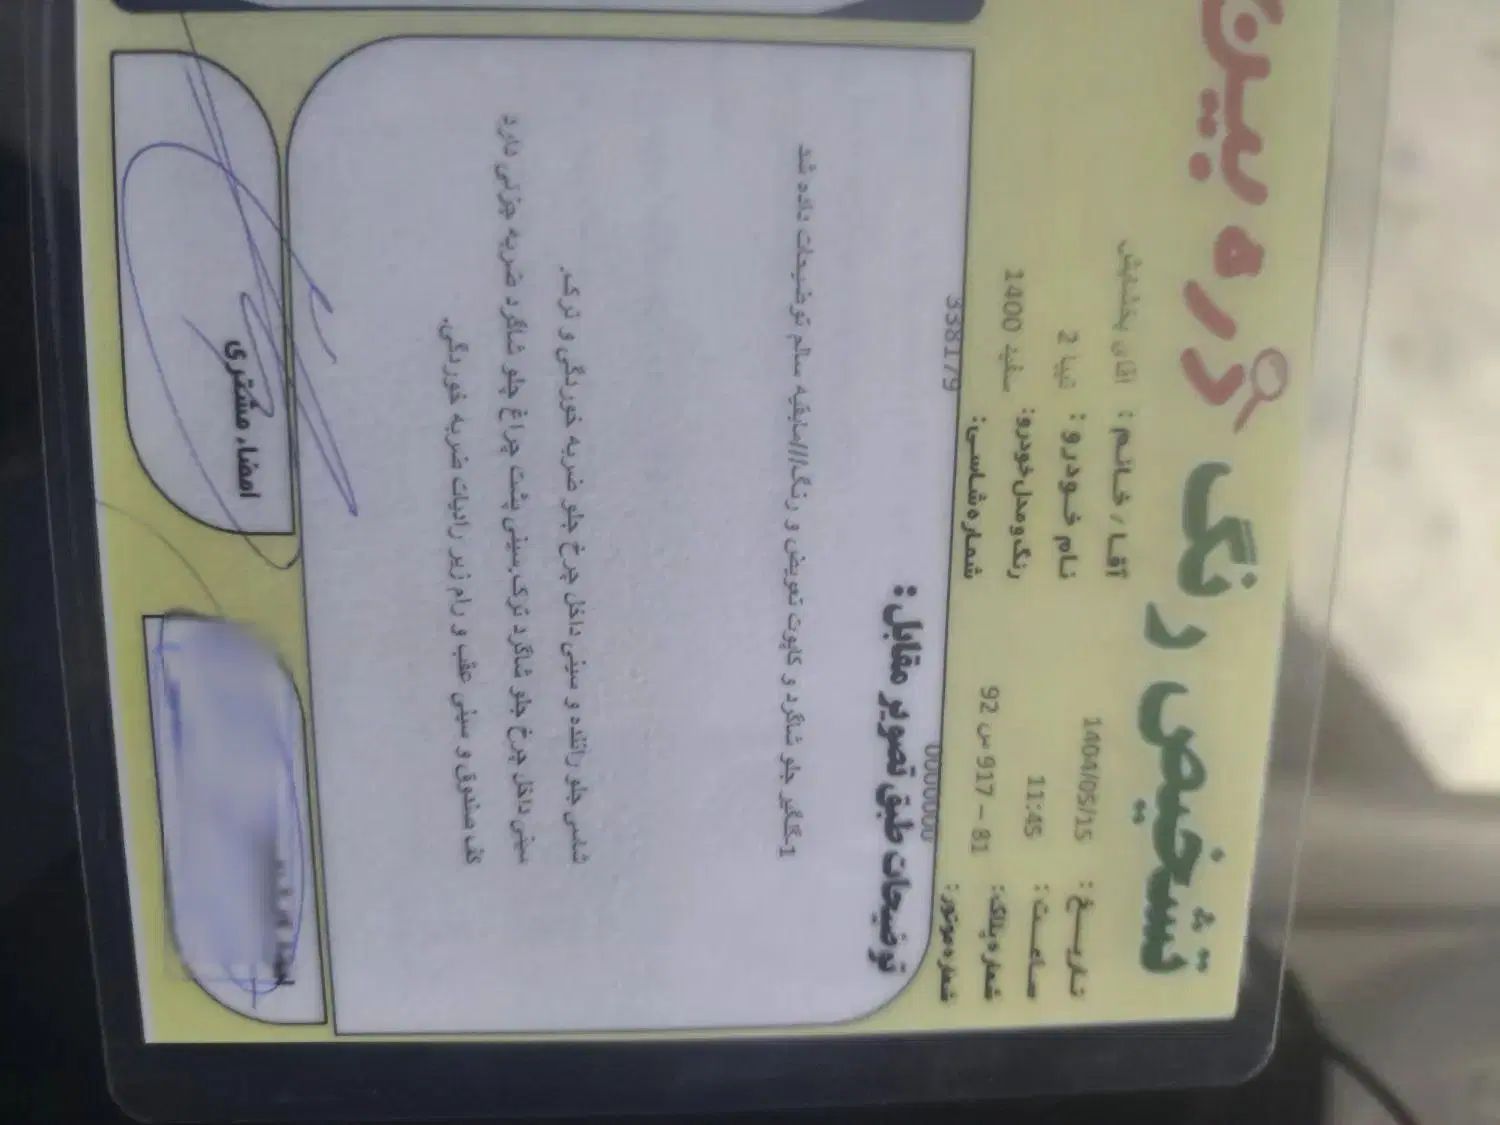 تشخیص رنگ ذره بین
تاریخ : 1404/05/15
آقا / خانم : آقای بخشایش
ساعت : 11:45
نام خودرو : تیبا 2
شماره پلاک: 81 – 917 س 92
رنگ و مدل خودرو: سفید 1400
شماره موتور: 0000000
شماره شاسی: 338179
توضیحات طبق تصویر مقابل :
1-گلگیر جلو شاگرد و کاپوت تعویض و رنگ///مابقیه سالم توضیحات داده شد
شاسی جلو راننده و سینی داخل چرخ جلو ضربه خوردگی و ترک.
سینی داخل چرخ جلو شاگرد ترک.سینی پشت چراغ جلو شاگرد ضربه جزئی دارد
کف صندوق و سینی عقب و رام زیر رادیات ضربه خوردگی.
امضاء مشتری